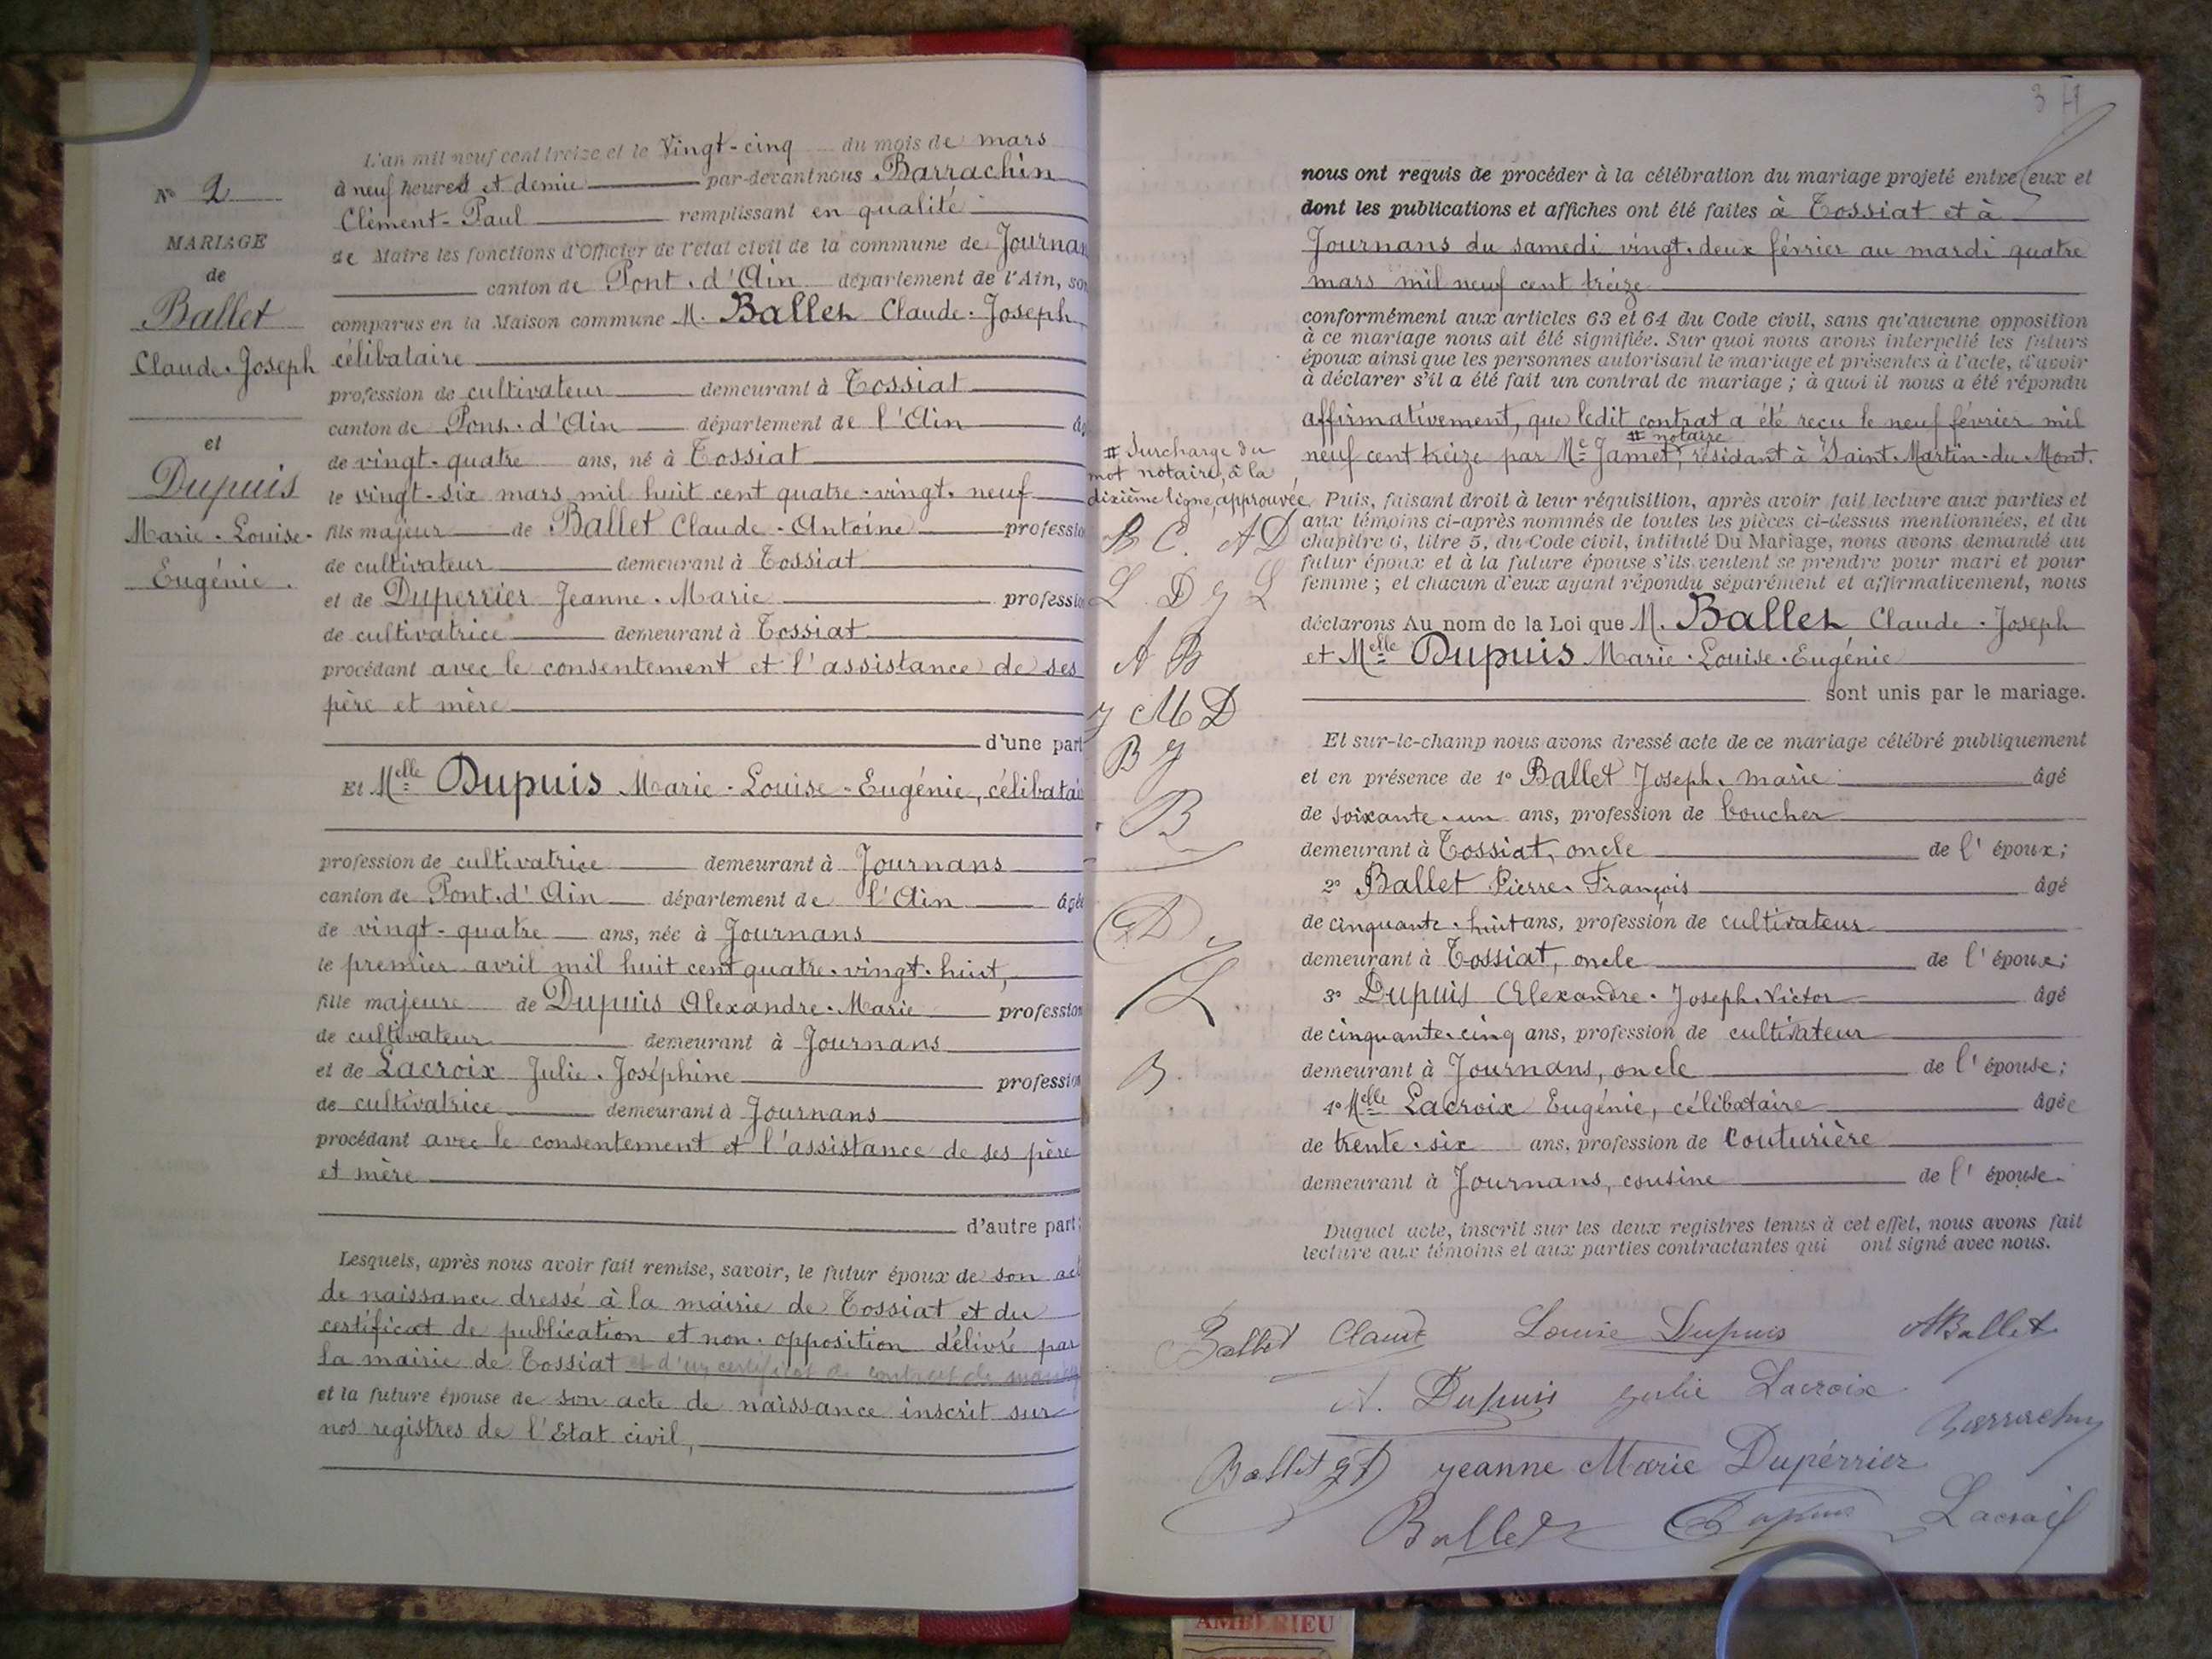 N° 2
MARIAGE
de
Ballet
Claude-Joseph
et
Dupuis
Marie-Louise-
Eugénie.
L'an mil neuf cent treize et le Vingt-cinq du mois de mars
à neuf heures et demie par-devant nous Barrachin
Clément-Paul remplissant en qualité
de Maire les fonctions d'Officier de l'état civil de la commune de Journan
canton de Pont-d'Ain département de l'Ain, son
comparus en la Maison commune M. Ballet Claude-Joseph,
célibataire
profession de cultivateur demeurant à Tossiat
canton de Pont-d'Ain département de l'Ain âg
de vingt-quatre ans, né à Tossiat
le vingt-six mars mil huit cent quatre-vingt-neuf
fils majeur de Ballet Claude-Antoine professio
de cultivateur demeurant à Tossiat
et de Duperrier Jeanne-Marie professio
de cultivatrice demeurant à Tossiat
procédant avec le consentement et l'assistance de ses
père et mère
d'une part
Et Melle Dupuis Marie-Louise-Eugénie, célibatai
profession de cultivatrice demeurant à Journans
canton de Pont-d'Ain département de l'Ain âgée
de vingt-quatre ans, née à Journans
le premier avril mil huit cent quatre-vingt-huit,
fille majeure de Dupuis Alexandre-Marie profession
de cultivateur demeurant à Journans
et de Lacroix Julie-Joséphine profession
de cultivatrice demeurant à Journans
procédant avec le consentement et l'assistance de ses père
et mère
d'autre part;
Lesquels, après nous avoir fait remise, savoir, le futur époux de son act
de naissance dressé à la mairie de Tossiat et du
certificat de publication et non-opposition délivré par
la mairie de Tossiat et d'un certificat de contrat de mariage
et la future épouse de son acte de naissance inscrit sur
nos registres de l'Etat civil,
3
nous ont requis de procéder à la célébration du mariage projeté entre eux et
dont les publications et affiches ont été faites à Tossiat et à
Journans du samedi vingt-deux février au mardi quatre
mars mil neuf cent treize
conformément aux articles 63 et 64 du Code civil, sans qu'aucune opposition
à ce mariage nous ait été signifiée. Sur quoi nous avons interpellé les futurs
époux ainsi que les personnes autorisant le mariage et présentes à l'acte, d'avoir
à déclarer s'il a été fait un contrat de mariage ; à quoi il nous a été répondu
affirmativement, que ledit contrat a été reçu le neuf février mil
# notaire
neuf cent treize par Me Jamet, résidant à Saint-Martin-du-Mont.
# Surcharge du
mot notaire, à la
dixième ligne, approuvée
B C. A D
L D J L
A B
J M D
B J
B
D
L
B.
Puis, faisant droit à leur réquisition, après avoir fait lecture aux parties et
aux témoins ci-après nommés de toutes les pièces ci-dessus mentionnées, et du
chapitre 6, titre 5, du Code civil, intitulé Du Mariage, nous avons demandé au
futur époux et à la future épouse s'ils veulent se prendre pour mari et pour
femme ; et chacun d'eux ayant répondu séparément et affirmativement, nous
déclarons Au nom de la Loi que M. Ballet Claude-Joseph
et Melle Dupuis Marie-Louise-Eugénie
sont unis par le mariage.
Et sur-le-champ nous avons dressé acte de ce mariage célébré publiquement
et en présence de 1° Ballet Joseph-marie âgé
de soixante-un ans, profession de boucher
demeurant à Tossiat, oncle de l'époux;
2° Ballet Pierre-François âgé
de cinquante-huit ans, profession de cultivateur
demeurant à Tossiat, oncle de l'époux;
3° Dupuis Alexandre-Joseph-Victor âgé
de cinquante-cinq ans, profession de cultivateur
demeurant à Journans, oncle de l'épouse;
4° Melle Lacroix Eugénie, célibataire âgée
de trente-six ans, profession de couturière
demeurant à Journans, cousine de l'épouse.
Duquel acte, inscrit sur les deux registres tenus à cet effet, nous avons fait
lecture aux témoins et aux parties contractantes qui ont signé avec nous.
Ballet Claude Louise Dupuis A Ballet
A. Dupuis Julie Lacroix
Barrachin
Ballet jeanne Marie Dupérrier
Ballet Dupuis Lacroix
AMBERIEU